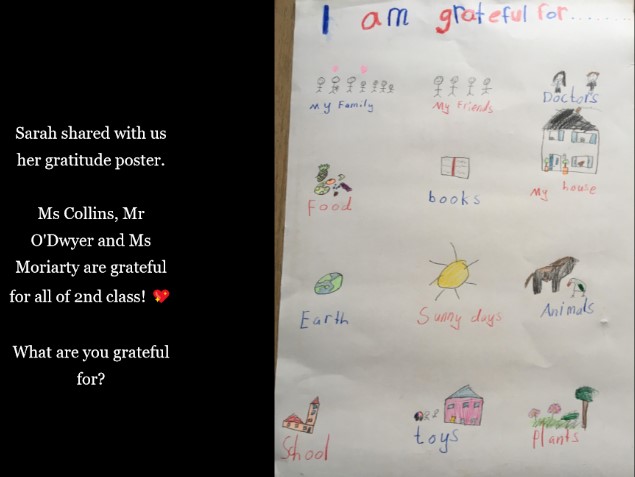 Sarah shared with us
her gratitude poster.
Ms Collins, Mr
O'Dwyer and Ms
Moriarty are grateful
for all of 2nd class! 💖
What are you grateful
for?
I am grateful for........
my Family
my Friends
Doctors
Food
books
my house
Earth
Sunny days
Animals
School
toys
Plants